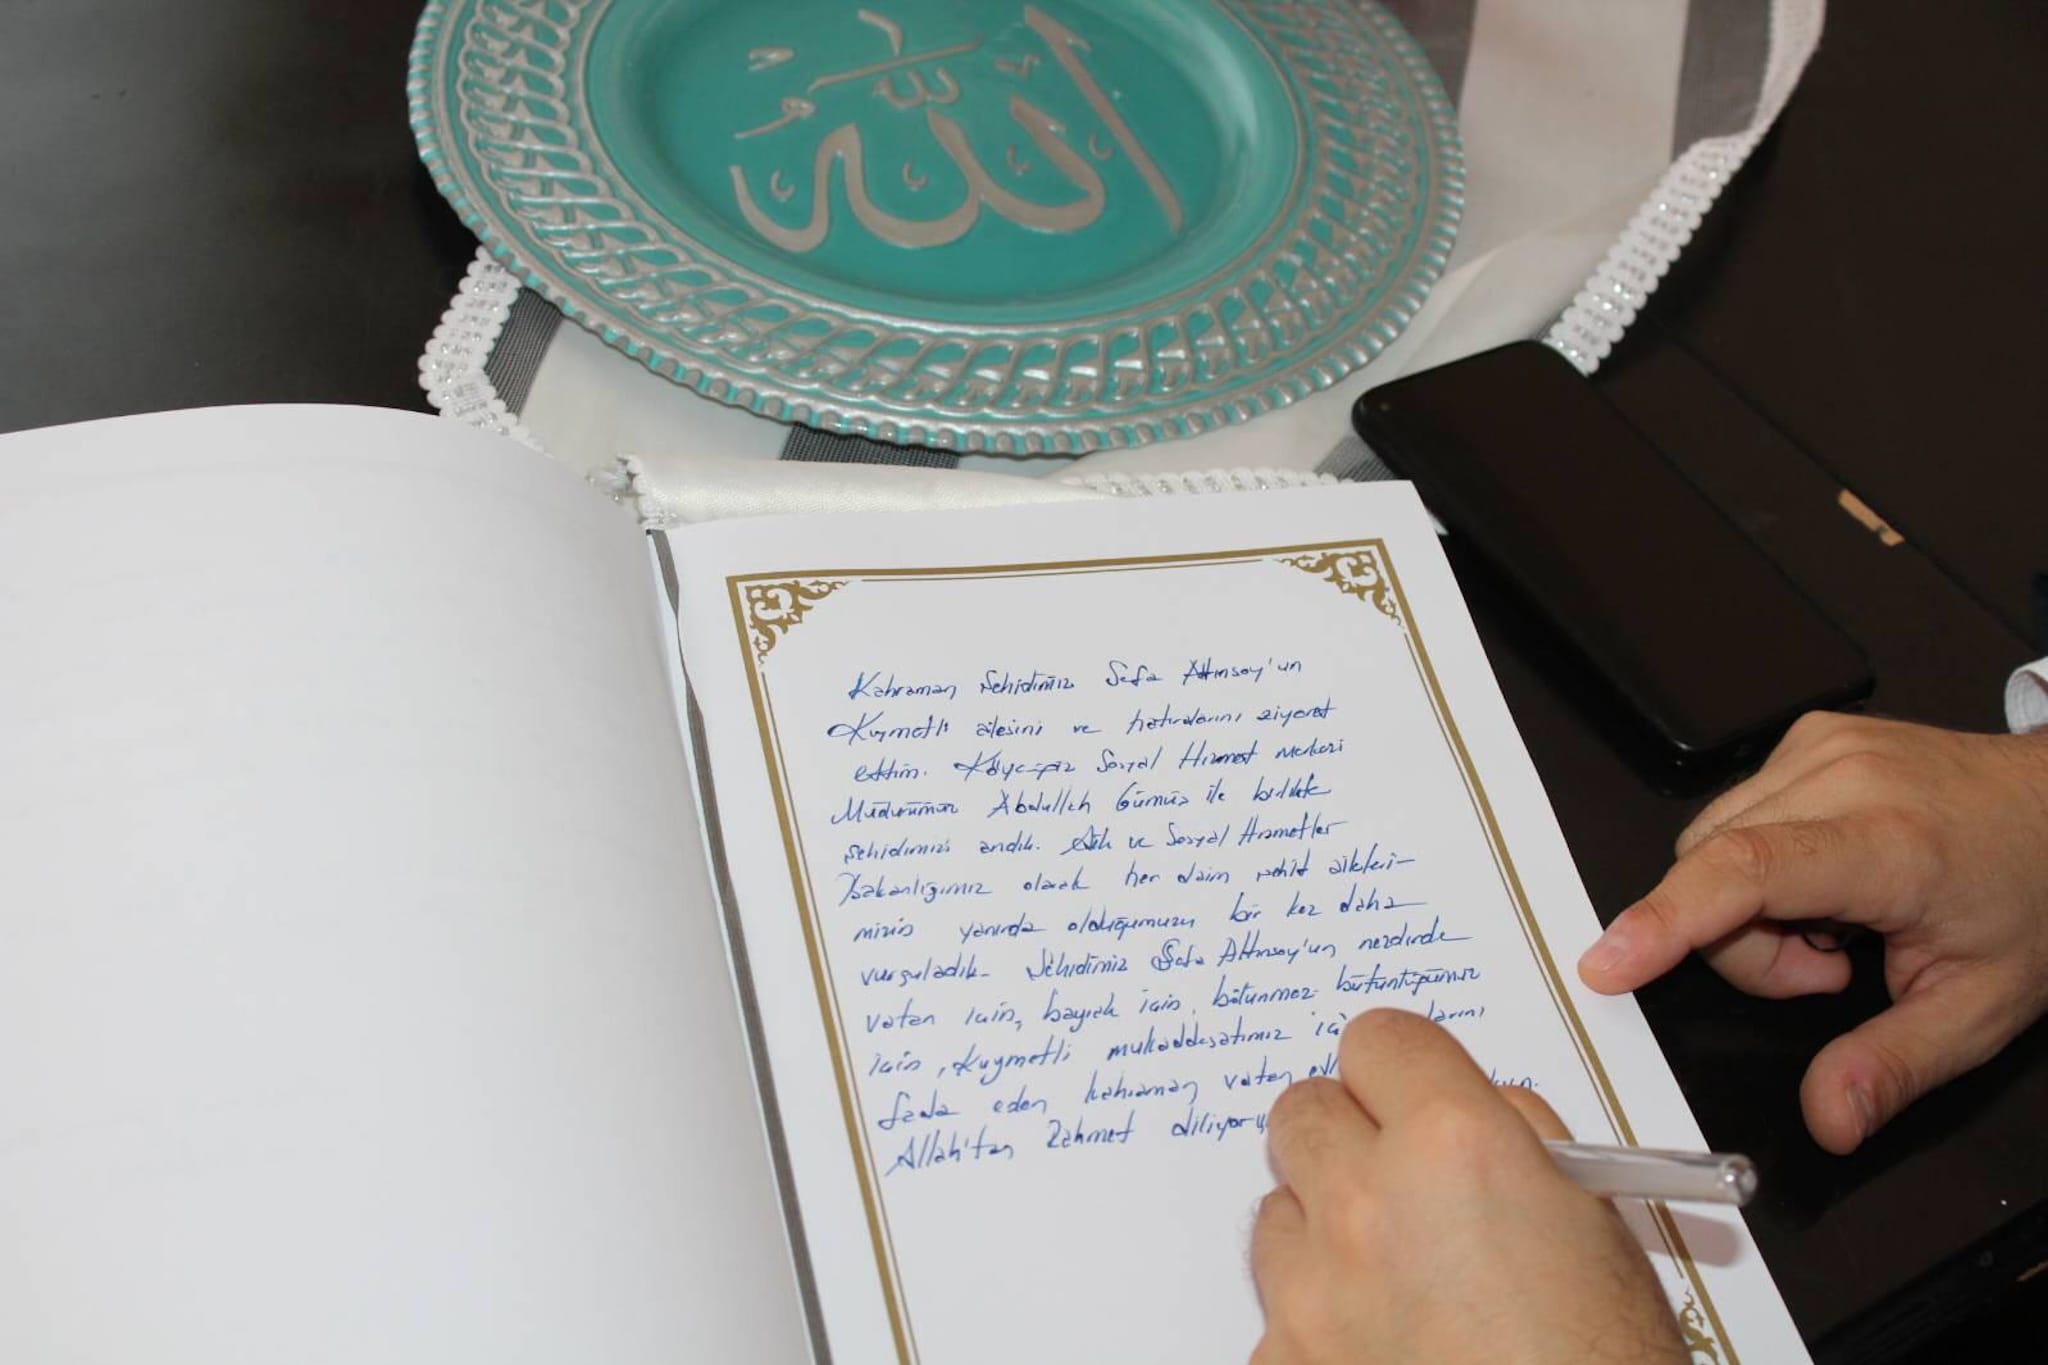 اللّٰه
Kahraman Şehidimiz Sefa Altınsoy'un
Kıymetli ailesini ve hatıralarını ziyaret
ettim. Köyceğiz Sosyal Hizmet Merkezi
Müdürümüz Abdullah Gümüş ile birlikte
şehidimizi andık. Aile ve Sosyal Hizmetler
Bakanlığımız olarak her daim şehit aileleri-
mizin yanında olduğumuzu bir kez daha
vurguladık. Şehidimiz Sefa Altınsoy'un nezdinde
vatan için, bayrak için, bölünmez bütünlüğümüz
için, Kıymetli mukaddesatımız larını
feda eden kahraman vatan
Allah'tan Rahmet diliyoru